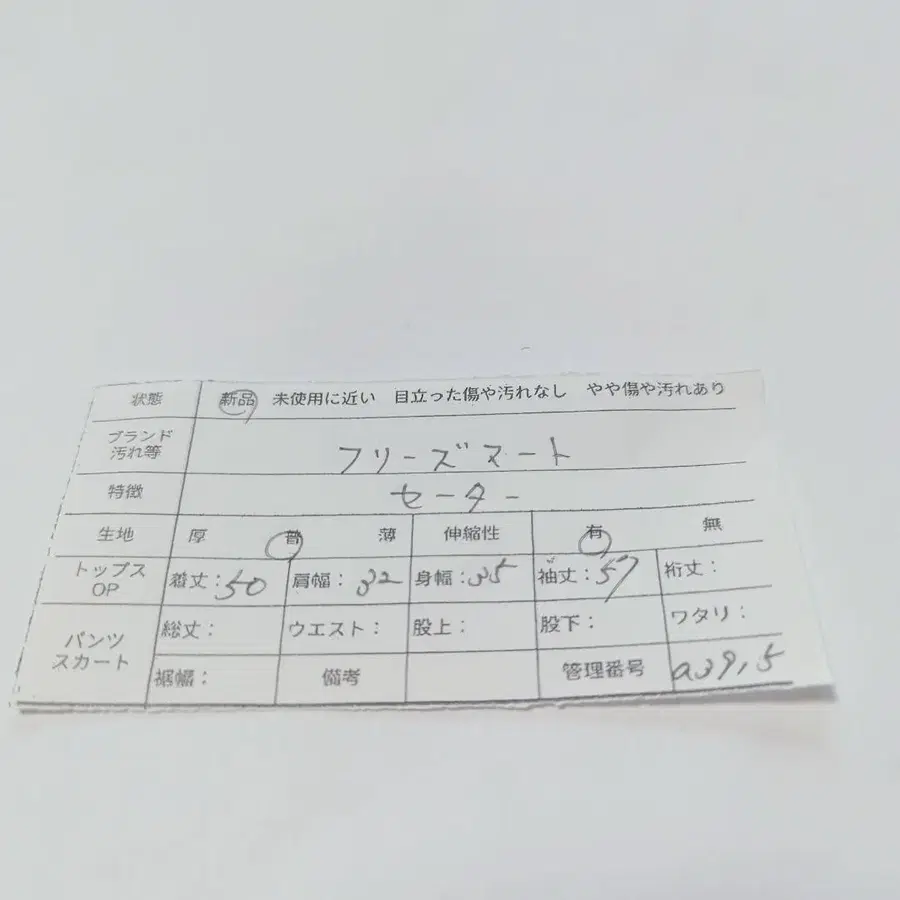 状態 新品 未使用に近い 目立った傷や汚れなし やや傷や汚れあり
ブランド
汚れ等 フリーズマート
特徴 セーター
生地 厚 普 薄 伸縮性 有 無
トップス
OP 着丈：50 肩幅：32 身幅：35 袖丈：57 裄丈：
パンツ
スカート 総丈： ウエスト： 股上： 股下： ワタリ：
裾幅： 備考 管理番号 a3915